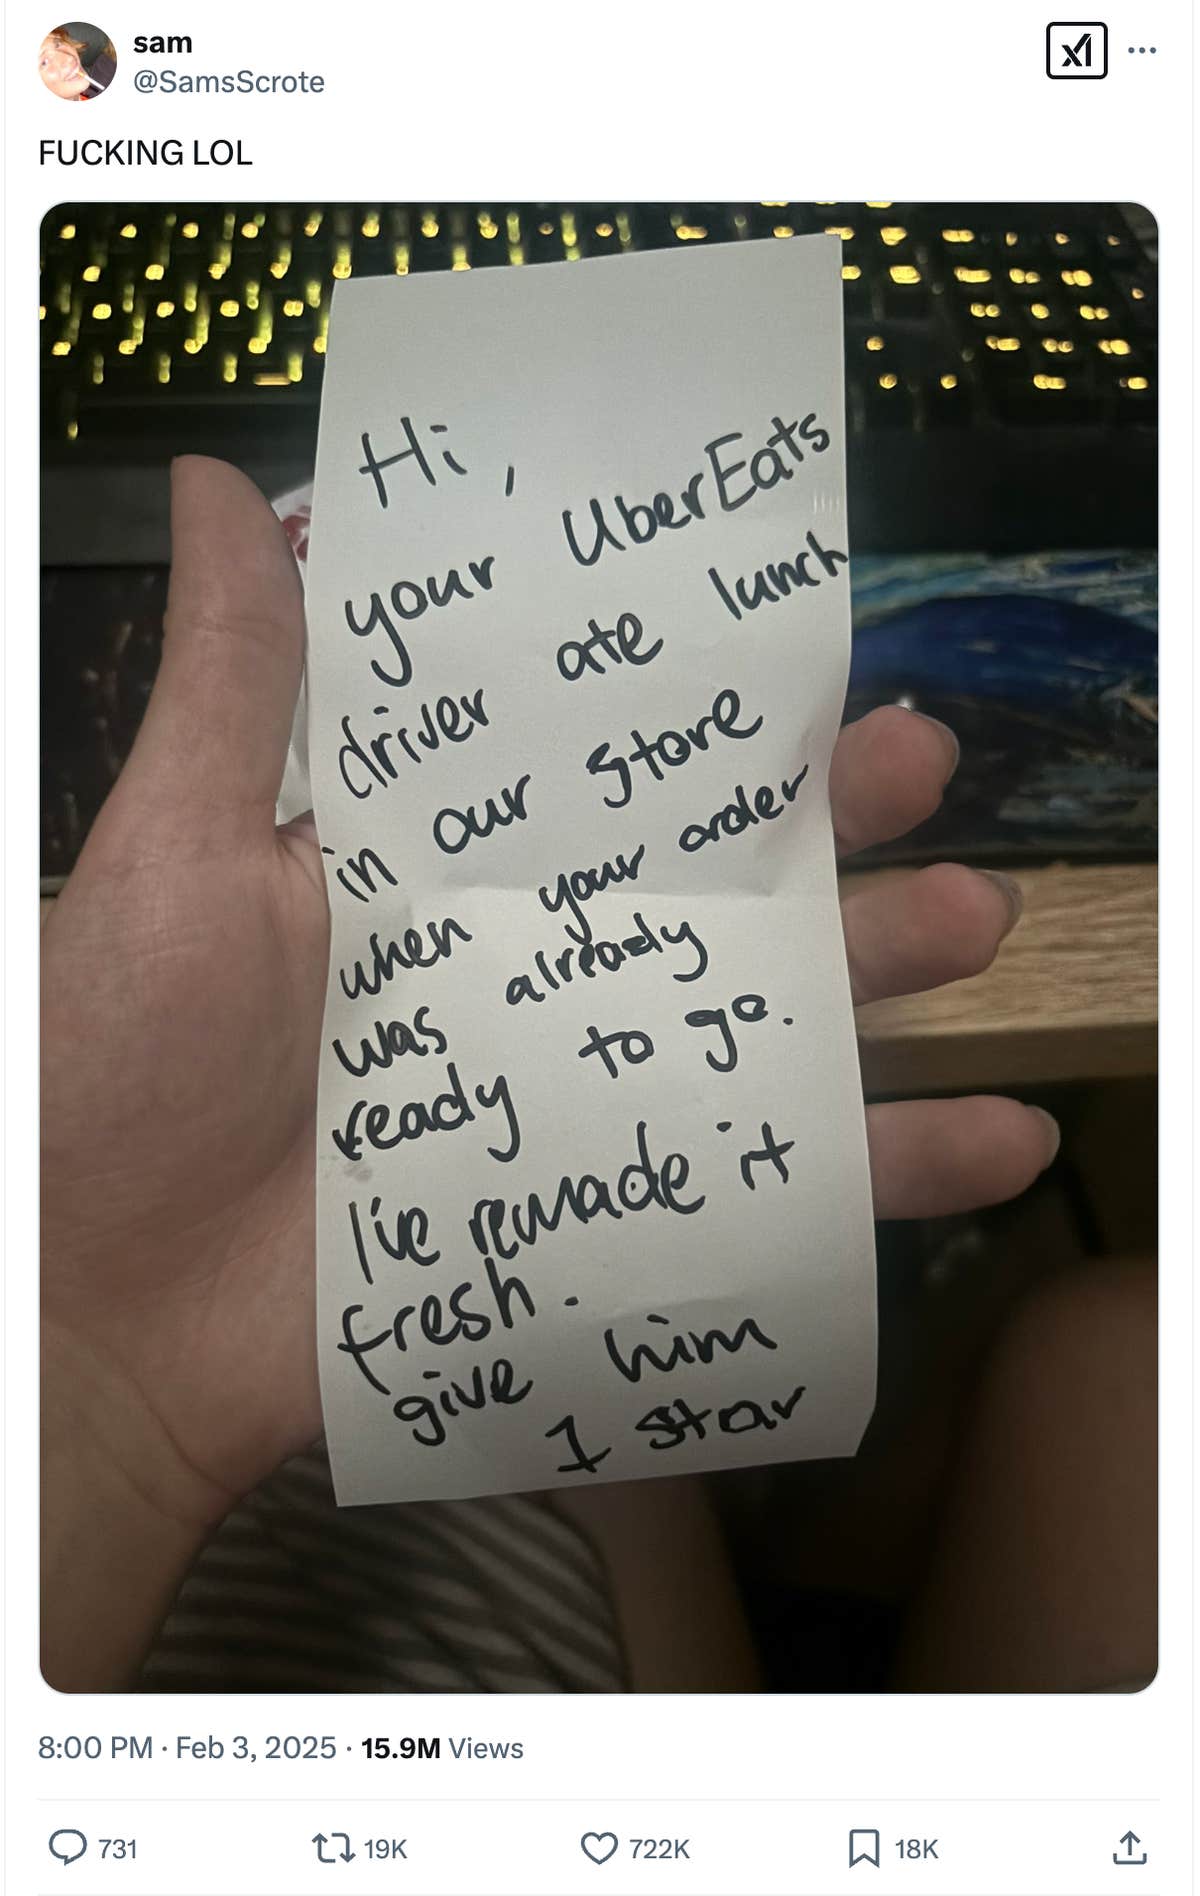 sam
@SamsScrote
FUCKING LOL
Hi,
your UberEats
driver ate lunch
in our store
when your order
was already
ready to go.
I've remade it
fresh.
give him
1 star
8:00 PM · Feb 3, 2025 · 15.9M Views
731 19K 722K 18K